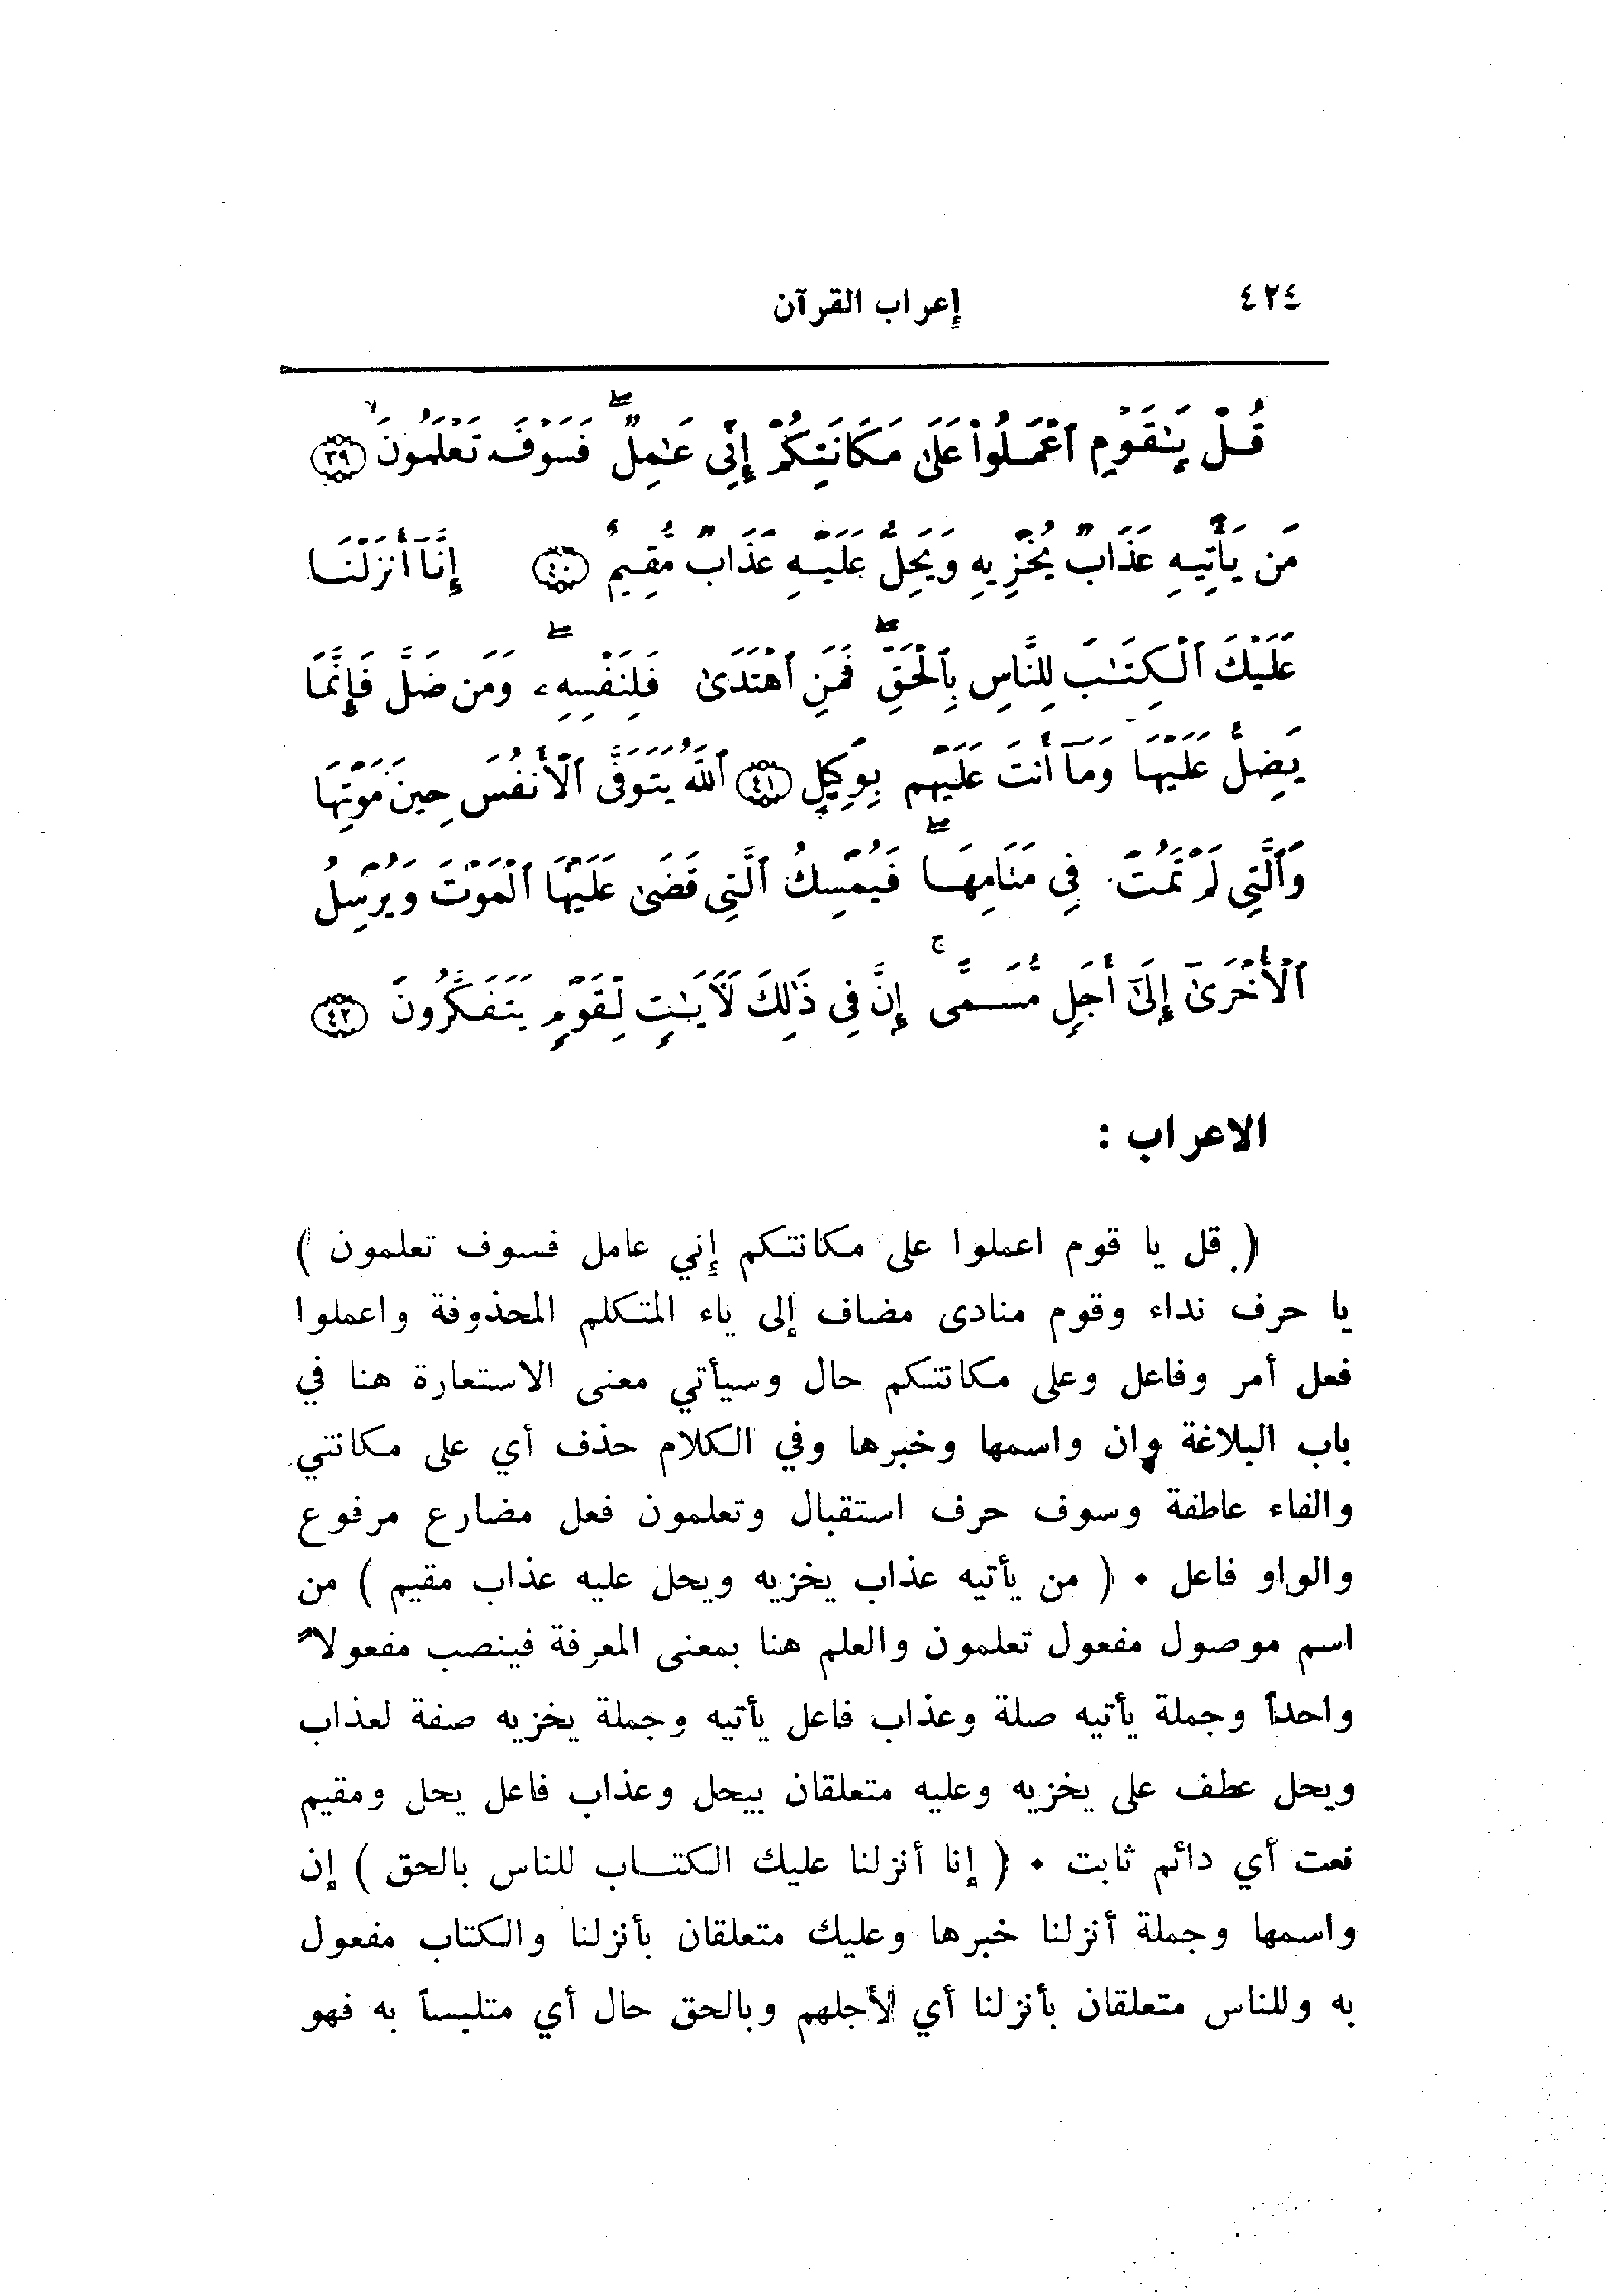 ٤٢٤ إعراب القرآن
قُلْ يَٰقَوْمِ ٱعْمَلُوا۟ عَلَىٰ مَكَانَتِكُمْ إِنِّى عَٰمِلٌ ۖ فَسَوْفَ تَعْلَمُونَ ۙ ٣٩
مَن يَأْتِيهِ عَذَابٌ يُخْزِيهِ وَيَحِلُّ عَلَيْهِ عَذَابٌ مُّقِيمٌ ٤٠ إِنَّآ أَنزَلْنَا
عَلَيْكَ ٱلْكِتَٰبَ لِلنَّاسِ بِٱلْحَقِّ ۖ فَمَنِ ٱهْتَدَىٰ فَلِنَفْسِهِۦ ۖ وَمَن ضَلَّ فَإِنَّمَا
يَضِلُّ عَلَيْهَا وَمَآ أَنتَ عَلَيْهِم بِوَكِيلٍ ٤١ ٱللَّهُ يَتَوَفَّى ٱلْأَنفُسَ حِينَ مَوْتِهَا
وَٱلَّتِى لَمْ تَمُتْ فِى مَنَامِهَا ۖ فَيُمْسِكُ ٱلَّتِى قَضَىٰ عَلَيْهَا ٱلْمَوْتَ وَيُرْسِلُ
ٱلْأُخْرَىٰٓ إِلَىٰٓ أَجَلٍ مُّسَمًّى ۚ إِنَّ فِى ذَٰلِكَ لَءَايَٰتٍ لِّقَوْمٍ يَتَفَكَّرُونَ ٤٢
الاعراب :
( قل يا قوم اعملوا على مكانتكم إني عامل فسوف تعلمون )
يا حرف نداء وقوم منادى مضاف إلى ياء المتكلم المحذوفة واعملوا
فعل أمر وفاعل وعلى مكانتكم حال وسيأتي معنى الاستعارة هنا في
باب البلاغة وإن واسمها وخبرها وفي الكلام حذف أي على مكانتي
والفاء عاطفة وسوف حرف استقبال وتعلمون فعل مضارع مرفوع
والواو فاعل . ( من يأتيه عذاب يخزيه ويحل عليه عذاب مقيم ) من
اسم موصول مفعول تعلمون والعلم هنا بمعنى المعرفة فينصب مفعولاً
واحداً وجملة يأتيه صلة وعذاب فاعل يأتيه وجملة يخزيه صفة لعذاب
ويحل عطف على يخزيه وعليه متعلقان بيحل وعذاب فاعل يحل ومقيم
نعت أي دائم ثابت . ( إنا أنزلنا عليك الكتاب للناس بالحق ) إن
واسمها وجملة أنزلنا خبرها وعليك متعلقان بأنزلنا والكتاب مفعول
به وللناس متعلقان بأنزلنا أي لأجلهم وبالحق حال أي متلبساً به فهو